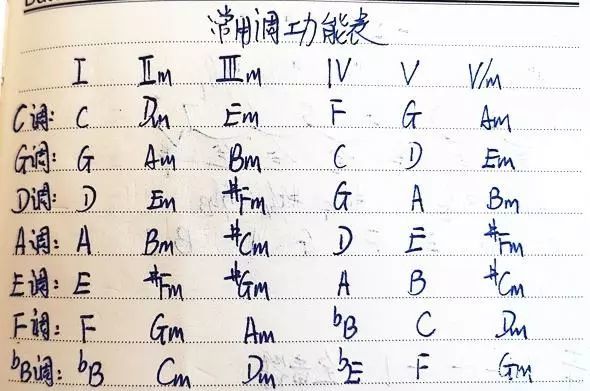 常用调功能表
I IIm IIIm IV V VIm
C调: C Dm Em F G Am
G调: G Am Bm C D Em
D调: D Em #Fm G A Bm
A调: A Bm #Cm D E #Fm
E调: E #Fm #Gm A B #Cm
F调: F Gm Am bB C Dm
bB调: bB Cm Dm bE F Gm